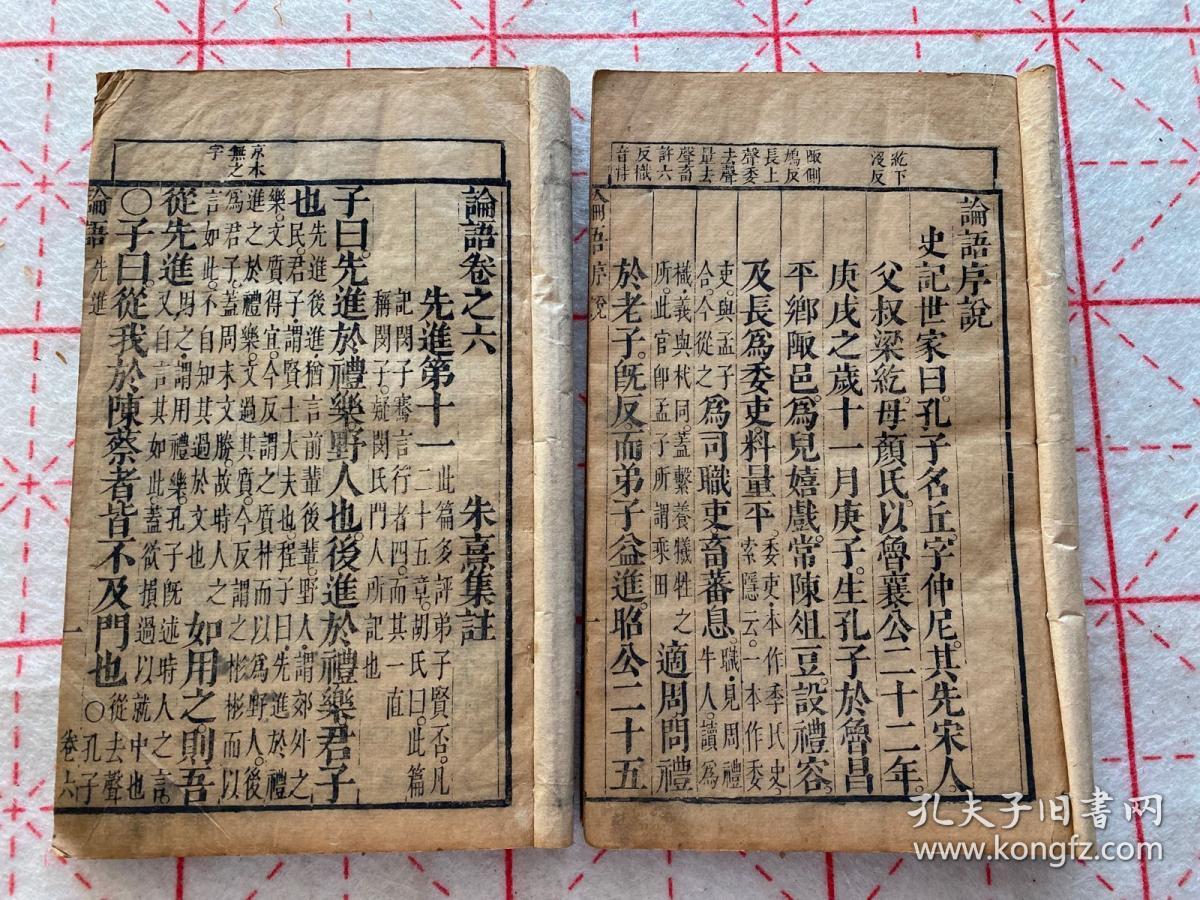 紇下
沒反
陬側
鳩反
長上
聲委
去聲
量去
聲畜
許六
反樴
論語序說
史記世家曰。孔子名丘。字仲尼。其先宋人。
父叔梁紇。母顏氏。以魯襄公二十二年。
庚戌之歲十一月庚子。生孔子於魯昌
平鄉陬邑。爲兒嬉戲。常陳俎豆。設禮容。
及長爲委吏料量平。委吏。本作季氏史。索隱云。一本作委
吏。與孟子合。今從之爲司職吏畜蕃息。職。見周禮牛人。讀爲
樴。義與杙同。蓋繫養犧牲之所。此官卽孟子所謂乘田適周問禮
於老子。旣反。而弟子益進。昭公二十五
語序說 一
京本
無之
字
論語卷之六 朱熹集註
先進第十一 此篇多評弟子賢否。凡二十五章。胡氏曰。此篇
記閔子騫言行者四。而其一直稱閔子。疑閔氏門人所記也
子曰。先進於禮樂。野人也。後進於禮樂。君子
也。先進後進。猶言前輩後輩。野人。謂郊外之民。君子。謂賢士大夫也。程子曰。先進於禮
樂。文質得宜。今反謂之質朴。而以爲野人。後進之於禮樂。文過其質。今反謂之彬彬。而以
爲君子。蓋周末文勝。故時人之言如此。不自知其過於文也 如用之。則吾
從先進。用之。謂用禮樂。孔子旣述時人之言。又自言其如此。蓋欲損過以就中也
○子曰。從我於陳蔡者。皆不及門也。○從去聲孔子
論語 先進 一 卷六
孔夫子旧书网
www.kongfz.com